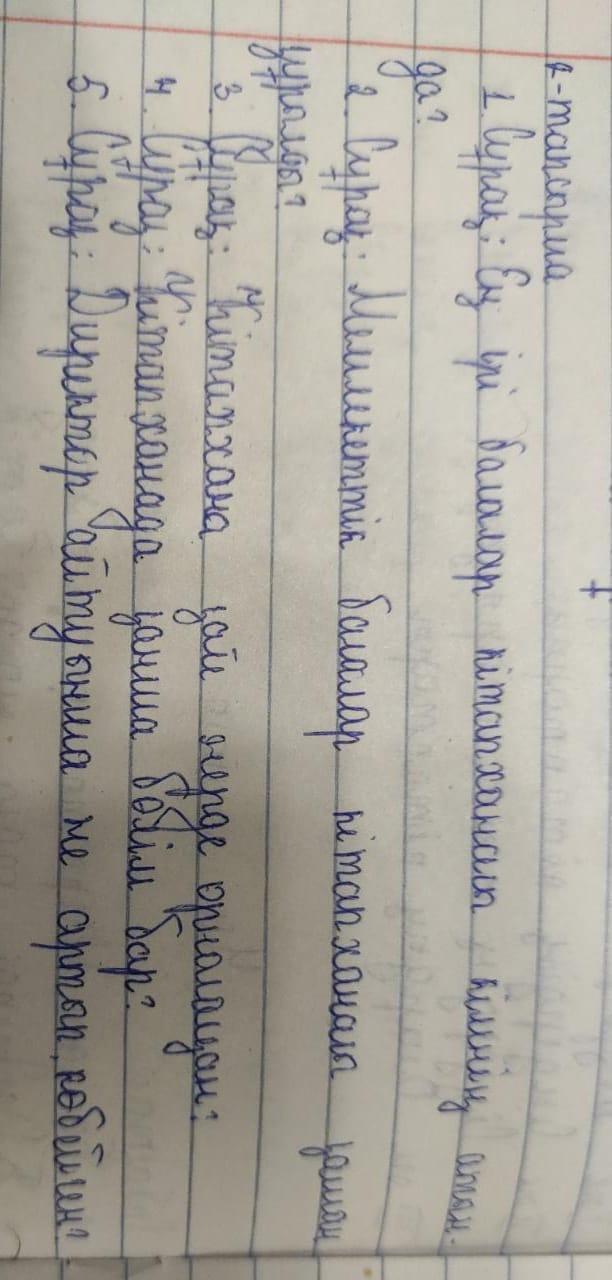 2-тапсырма
1. Сұрақ: Ең ірі балалар кітапханасы кімнің атын-
да?
2. Сұрақ: Мемлекеттік балалар кітапханасы қашан
құрылды?
3 Сұрақ: Кітапхана қай жерде орналасқан?
4. Сұрақ: Кітапханада қанша бөлім бар?
5. Сұрақ: Директор айтуынша не артып, көбейген?